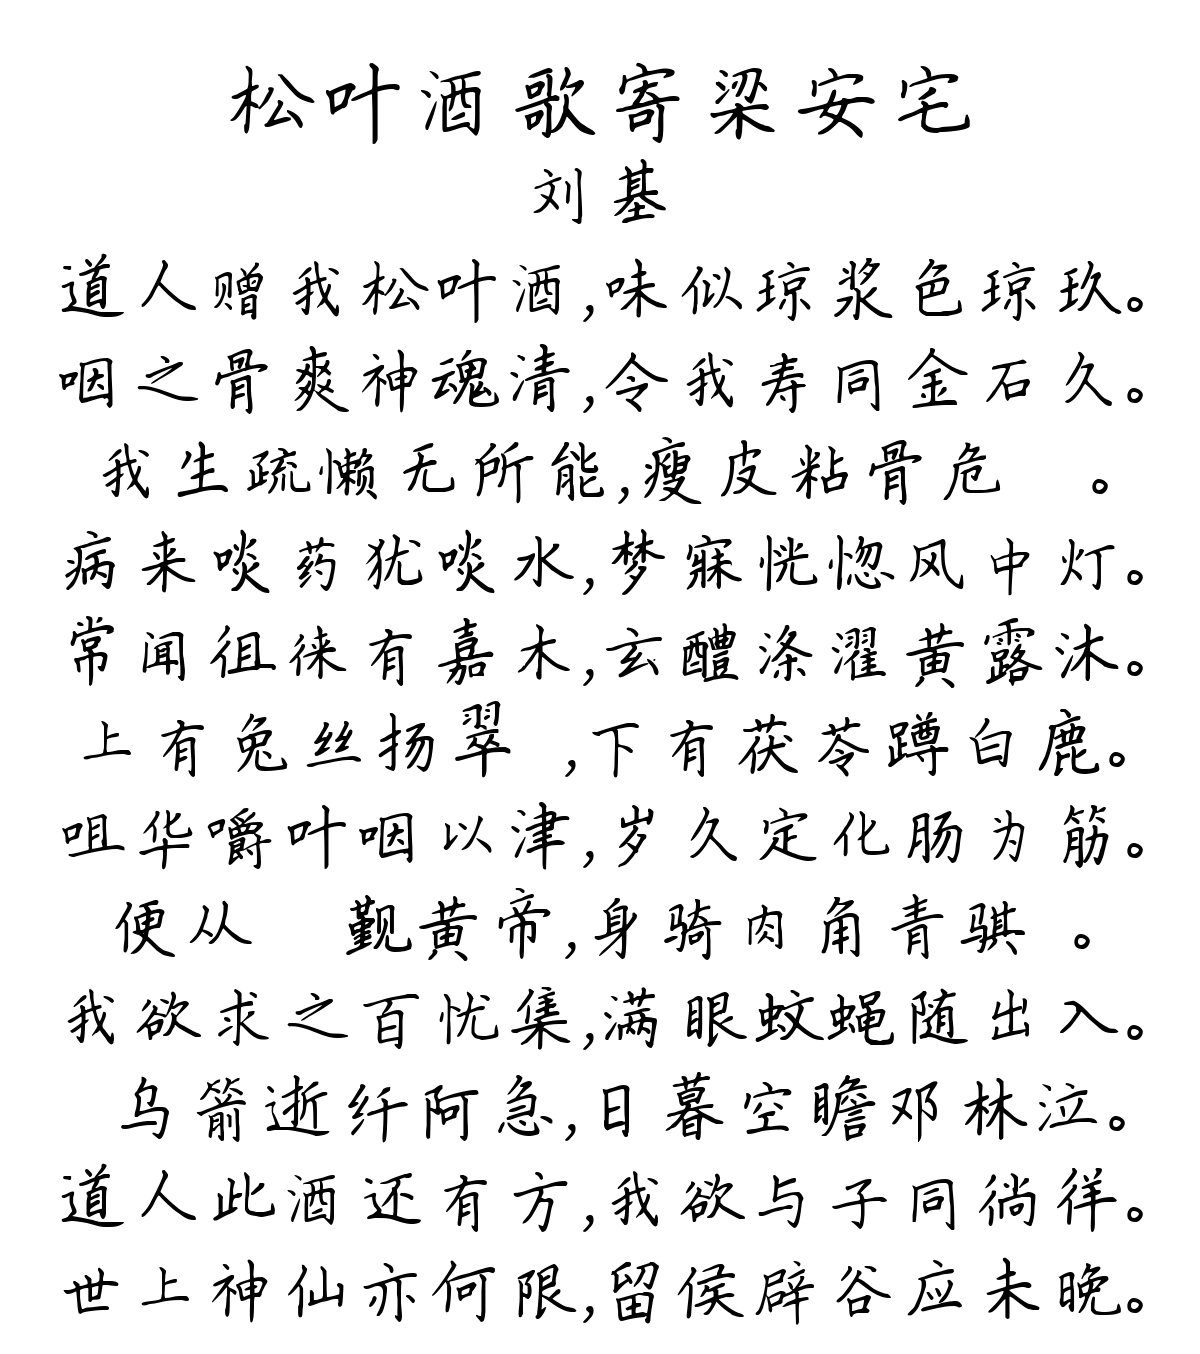 松叶酒歌寄梁安宅
刘基
道人赠我松叶酒,味似琼浆色琼玖。
咽之骨爽神魂清,令我寿同金石久。
我生疏懒无所能,瘦皮粘骨危 。
病来啖药犹啖水,梦寐恍惚风中灯。
常闻徂徕有嘉木,玄醴涤濯黄露沐。
上有兔丝扬翠 ,下有茯苓蹲白鹿。
咀华嚼叶咽以津,岁久定化肠为筋。
便从 觐黄帝,身骑肉角青骐 。
我欲求之百忧集,满眼蚊蝇随出入。
乌箭逝纤阿急,日暮空瞻邓林泣。
道人此酒还有方,我欲与子同徜徉。
世上神仙亦何限,留侯辟谷应未晚。